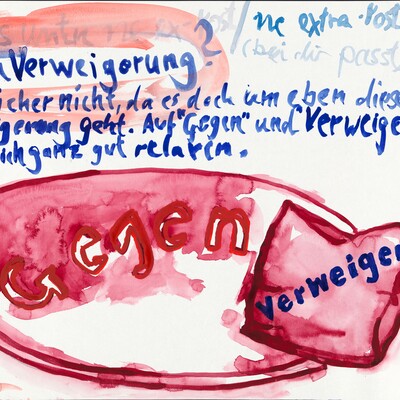 ne extra-Post
(bei dir passt
Verweigerung?
icher nicht, da es doch um eben diese
gerung geht. Auf "Gegen" und Verweige
ich ganz gut relaxen.
Gegen
Verweiger